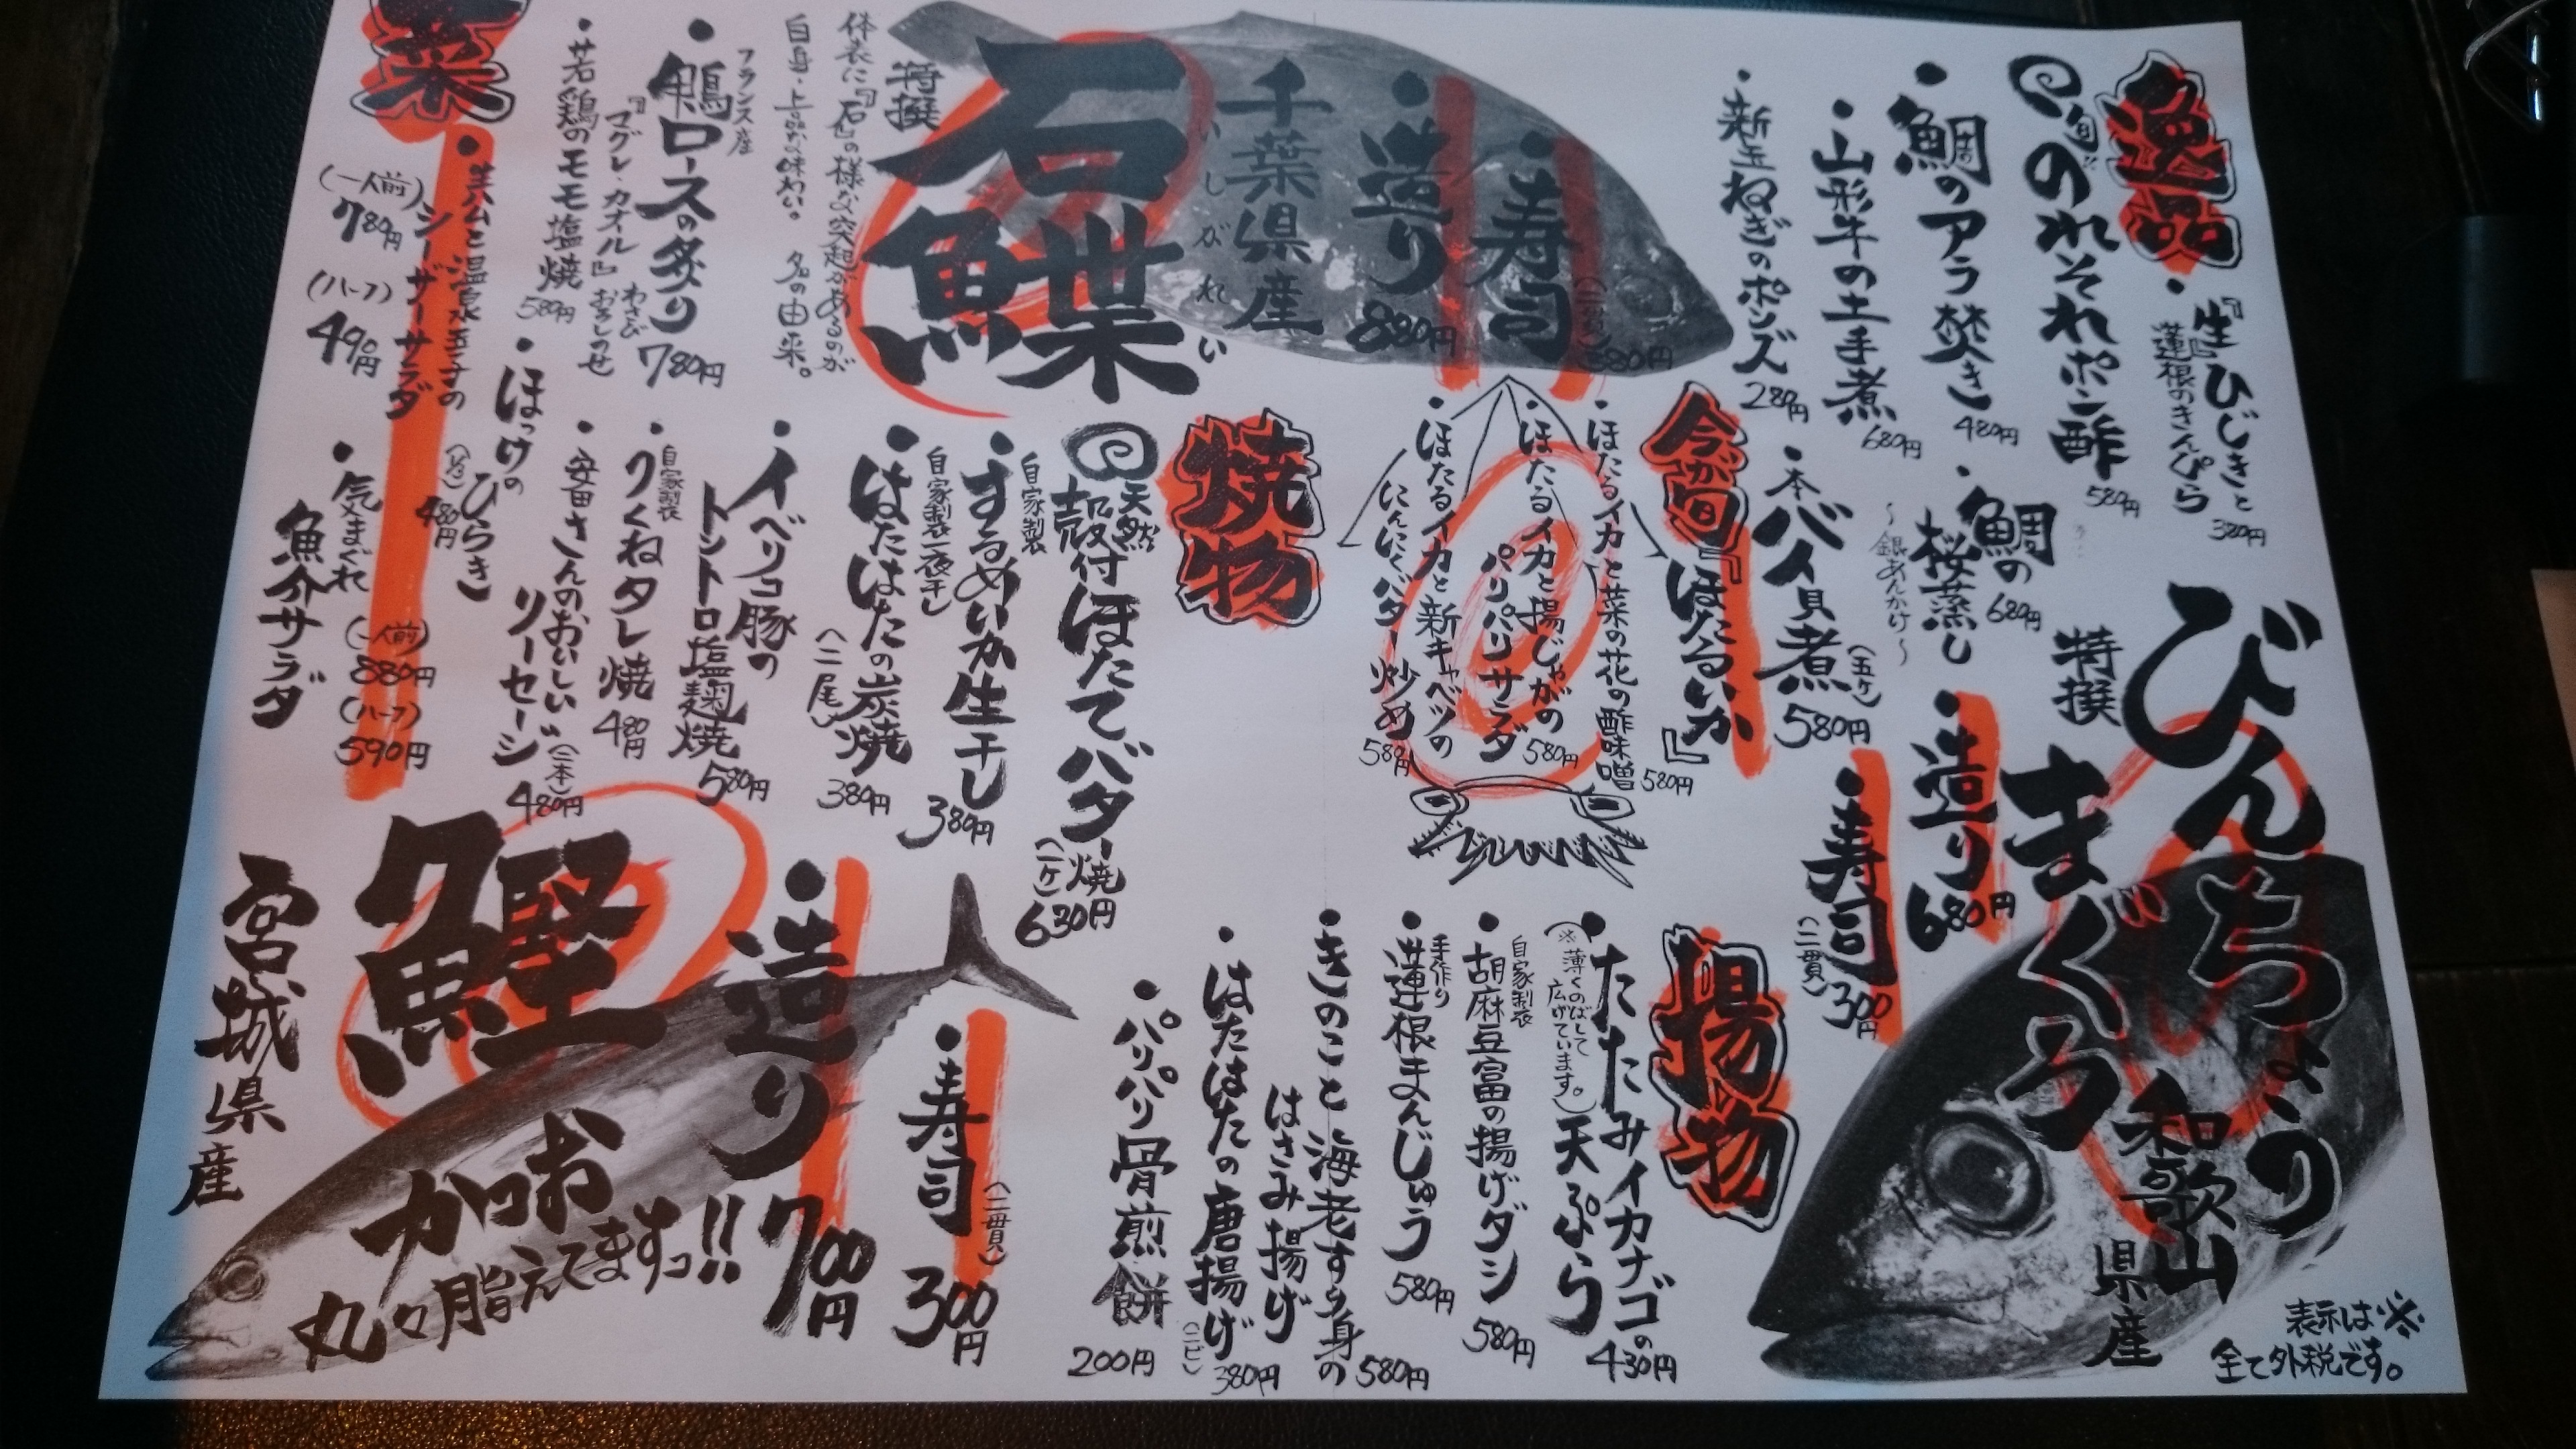 逸品
『生』ひじきと
蓮根のきんぴら
380円
旬
のれそれポン酢
580円
鯛のアラ焚き
480円
山形牛の土手煮
680円
新玉ねぎのポンズ
280円
鯛の
桜蒸し
680円
～銀あんかけ～
本バイ貝煮
(五ケ)
580円
特撰
びんちょう
まぐろ
和歌山
県産
造り
680円
寿司
(二貫)
300円
表示は※
全て外税です。
特撰
石鰈
いしがれい
千葉県産
造り
880円
寿司
(二貫)
380円
体表に『石』の様な突起があるのが
名の由来。
白身・上品な味わい。
今が旬
『ほたるいか』
ほたるイカと菜の花の酢味噌
580円
ほたるイカと揚じゃがの
パリパリサラダ
580円
ほたるイカと新キャベツの
にんにくバター炒め
580円
焼物
天然
殻付ほたてバター焼
(一ケ)
630円
自家製
するめいか生干し
380円
自家製一夜干し
はたはたの炭焼
(二尾)
380円
イベリコ豚の
トントロ塩麹焼
580円
自家製
つくねタレ焼
480円
安田さんのおいしい
ソーセージ
(二本)
480円
ほっけの
ひらき
(1/2)
480円
フランス産
鴨ロースの炙り
『マグレ・カナール』
わさび
おろしのせ
780円
若鶏のモモ塩焼
580円
菜
生ハムと温泉玉子の
シーザーサラダ
(一人前)
780円
(ハーフ)
490円
気まぐれ
魚介サラダ
(一人前)
880円
(ハーフ)
590円
揚物
たたみイカナゴの
天ぷら
(※薄くのばして
広げています。)
430円
自家製
胡麻豆富の揚げダシ
580円
手作り
蓮根まんじゅう
580円
きのこと海老すり身の
はさみ揚げ
580円
はたはたの唐揚げ
(二ピ)
380円
パリパリ骨煎餅
200円
鰹
かつお
宮城県産
丸々脂えてますっ!!
造り
700円
寿司
(二貫)
300円